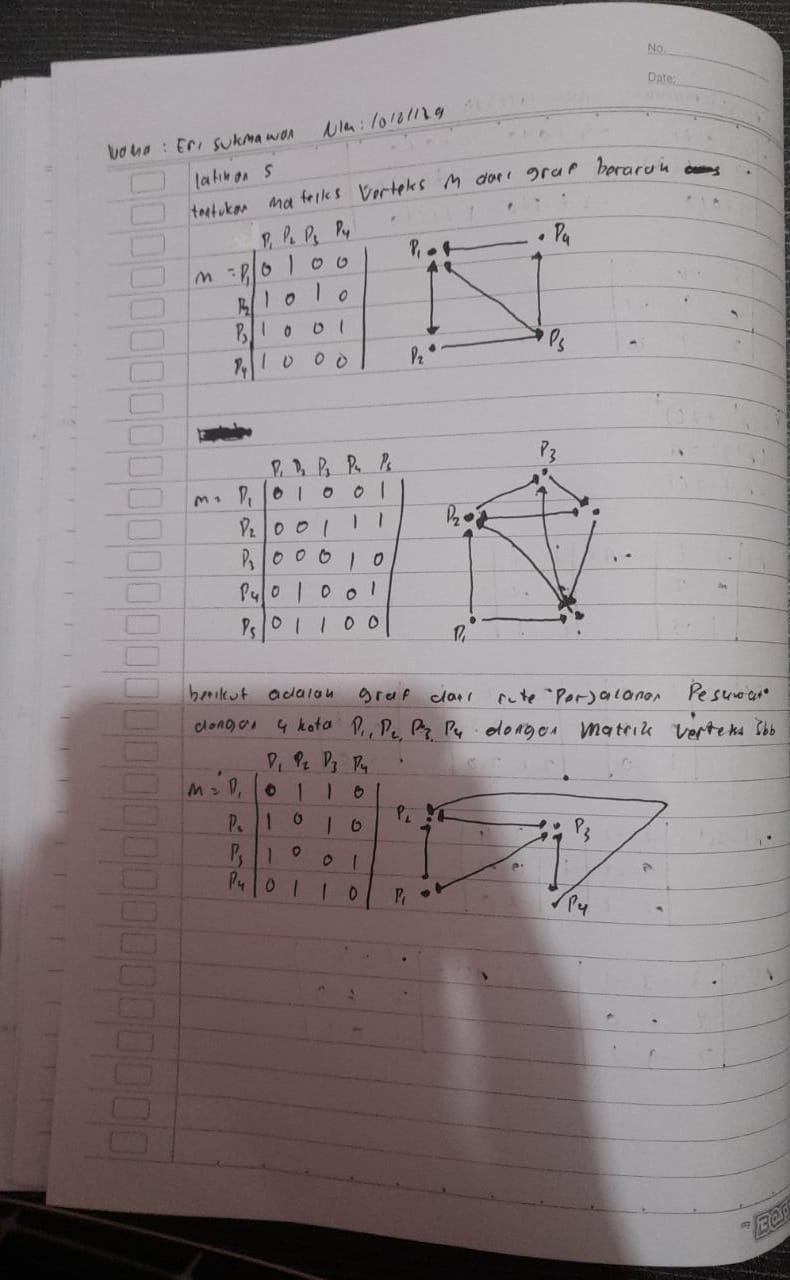 No.
Date:
Nama : Eri Sukmawan Nim : 10121129
latihan 5
tentukan matriks Verteks M dari graf berarah
P1 P2 P3 P4
M = P1 0 1 0 0
P2 1 0 1 0
P3 1 0 0 1
P4 1 0 0 0
P1 P4
P2 P3
P1 P2 P3 P4 P5
M = P1 0 1 0 0 1
P2 0 0 1 1 1
P3 0 0 0 1 0
P4 0 1 0 0 1
P5 0 1 1 0 0
P3
P2
P1
berikut adalah graf dari rute Perjalanan Pesawat
dengan 4 kota P1, P2, P3, P4 dengan Matrik Verteks Sbb
P1 P2 P3 P4
M = P1 0 1 1 0
P2 1 0 1 0
P3 1 0 0 1
P4 0 1 1 0
P2 P3
P1 P4